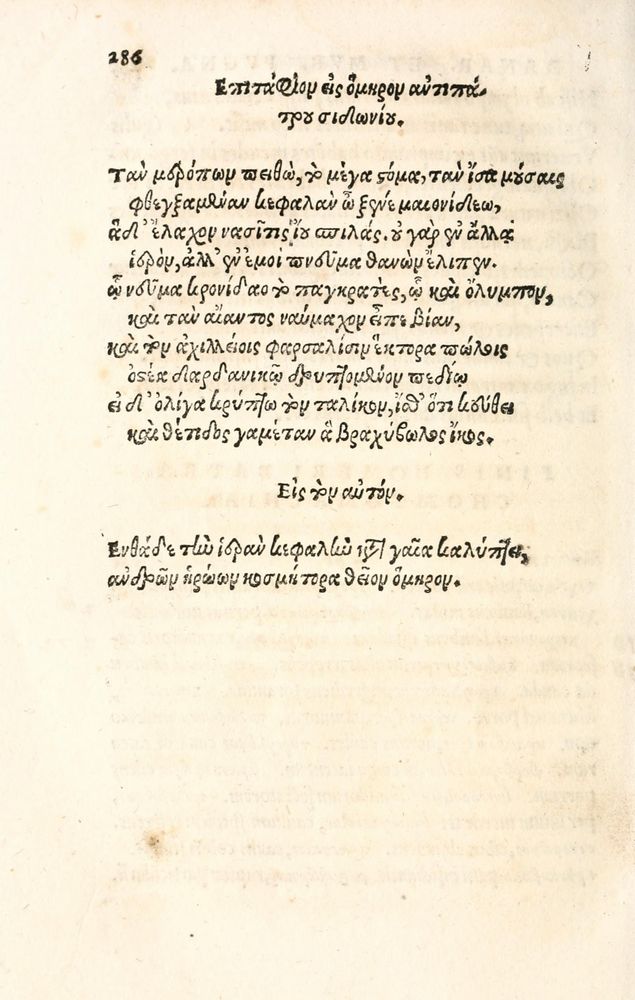 286
Επιτάφιον εἰς ὅμηρον ἀντιπά-
τρου σιδωνίου.
Τὰν μερόπων πειθὼ, τὸ μέγα στόμα, τὰν ἴσα μούσαις
φθεγξαμέναν κεφαλὰν ὦ ξεῖνε μαιονίδεω,
ἅδ' ἔλαχον νασῖτις ἴου σπιλάς. οὐ γὰρ ἐν ἄλλᾳ
ἱερὸν, ἀλλ' ἐν ἐμοὶ πνεῦμα θανὼν ἔλιπεν.
ᾧ νεῦμα κρονίδαο τὸ παγκρατὲς, ᾧ καὶ ὄλυμπον,
καὶ τὰν αἴαντος ναύμαχον εἶπε βίαν,
καὶ τὸν ἀχιλλείοις φαρσαλίσιν ἕκτορα πώλοις
ὀστέα δαρδανικῷ δρυπτόμενον πεδίῳ
εἰ δ' ὀλίγα κρύπτω τὸν ταλίκον, ἴσθ' ὅτι κεύθει
καὶ θέτιδος γαμέταν ἁ βραχύβωλος ἴκος.
Εἰς τὸν αὐτόν.
Ενθάδε τὴν ἱερὰν κεφαλὴν κατὰ γαῖα καλύπτει,
ἀνδρῶν ἡρώων κοσμήτορα θεῖον ὅμηρον.